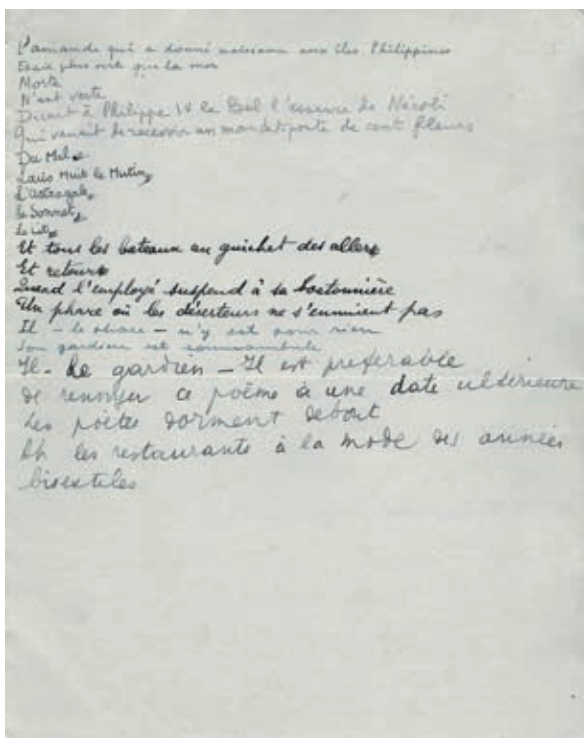 L'amande qui a donné naissance aux îles Philippines
Etait plus verte que la mer
Morte
N'est verte
Disait à Philippe IV le Bel l'essence de Néroli
Qui venait de recevoir un mandat-poste de cent fleurs
Du Mal
Louis Huit le Mutin,
L'astragale,
le Sonnet,
Le
Et tous les bateaux au guichet des allers
Et retours
Quand l'employé suspend à sa boutonnière
Un phare où les déserteurs ne s'ennuient pas
Il - le phare - n'y est pour rien
Son gardien est somnambule
Il - Le gardien - Il est préférable
de renvoyer ce poème à une date ultérieure
Les poètes dorment debout
Oh les restaurants à la mode des années
bisextiles